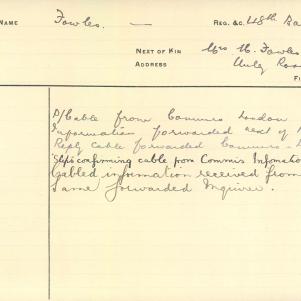 NAME Fowles. REG. &C. 48th Ba
NEXT OF KIN Mrs H. Fowles
ADDRESS Unley Roa
FI
D/Cable from Commrs London
Information forwarded next of
Reply cable forwarded Commrs -
Slips confirming cable from Commrs Infomatio
Cabled information received from
Same forwarded Inquirer.